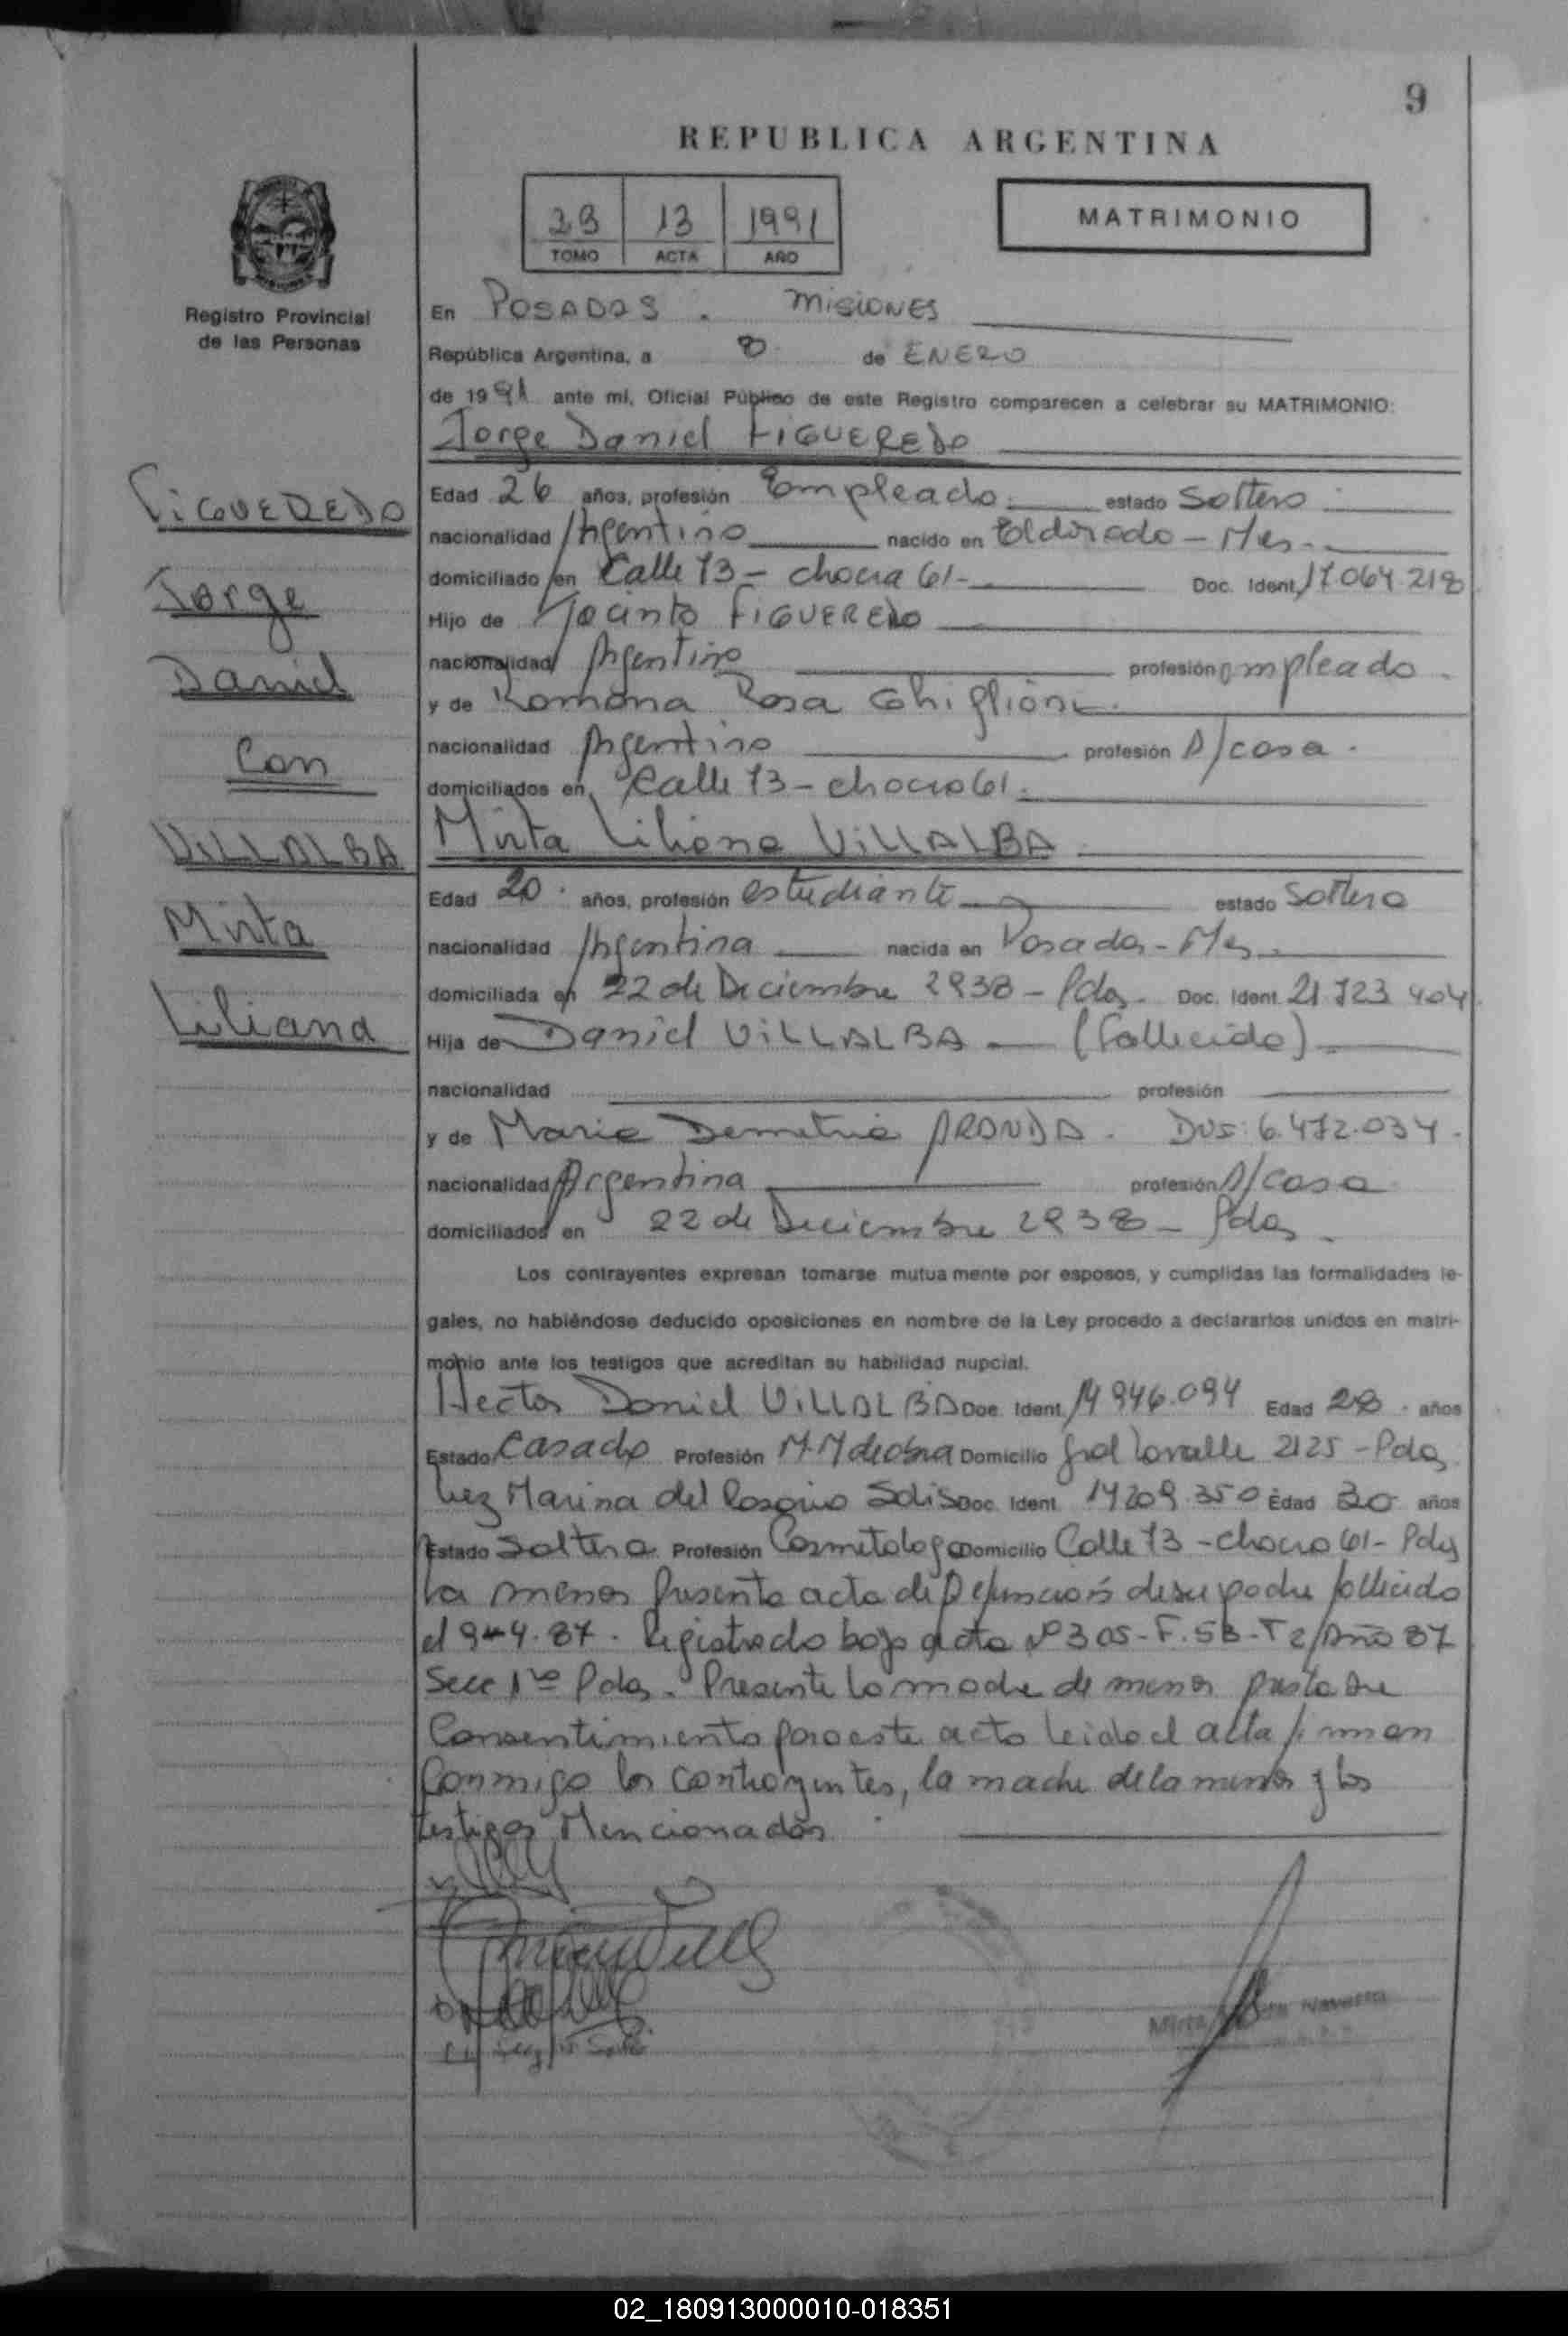 9
REPUBLICA ARGENTINA
MATRIMONIO
13 1991
TOMO ACTA AÑO
Registro Provincial
de las Personas
En POSADAS. MISIONES
República Argentina, a 8 de ENERO
de 1991 ante mí, Oficial Público de este Registro comparecen a celebrar su MATRIMONIO:
Jorge Daniel FIGUEREDO
FIGUEREDO
Jorge
Daniel
Con
VILLALBA
Mirta
Liliana
Edad 26 años, profesión Empleado. estado Soltero
nacionalidad Argentino nacido en Eldorado - Mes.
domiciliado en Calle 73 - chacra 61- Doc. Ident. 17.064.218
Hijo de Jacinto FIGUEREDO
nacionalidad Argentino profesión empleado.
y de Romona Rosa Ghiglione.
nacionalidad Argentino profesión A/casa.
domiciliados en Calle 73 - chacra 61.
Mirta Liliana VILLALBA
Edad 20. años, profesión estudiante estado Soltera
nacionalidad Argentina nacida en Posadas - Mes.
domiciliada en 22 de Diciembre 2938 - Pdas. Doc. Ident. 21.723.404
Hija de Daniel VILLALBA (Fallecido)
nacionalidad profesión
y de Maria Demetria ARANDA. 6.472.034.
nacionalidad Argentina profesión A/casa
domiciliados en 22 de Diciembre 2938 - Pdas.
Los contrayentes expresan tomarse mutuamente por esposos, y cumplidas las formalidades le-
gales, no habiéndose deducido oposiciones en nombre de la Ley procedo a declararlos unidos en matri-
monio ante los testigos que acreditan su habilidad nupcial.
Hector Daniel VILLALBA Doc. Ident. 14.946.094 Edad 28. años
Estado Casado Profesión M.M de obra Domicilio Gral Lavalle 2125 - Pdas.
Luz Marina del Rosario Solis Doc. Ident. 14209.350 Edad 30 años
Estado Soltera Profesión Cosmetologa Domicilio Calle 73 - chacra 61- Pdas
La menor presenta acta de Defunción de su padre fallecido
el 9-4-87. Registrado bajo acta Nº 305 - F. 53 - T 2/Año 87
Secc 1ra Pdas. Presente la madre de menor presta su
Consentimiento para este acto leido el acta firman
Conmigo los contrayentes, la madre de la menor y los
testigos Mencionados.
Mirta Navarro
02_180913000010-018351